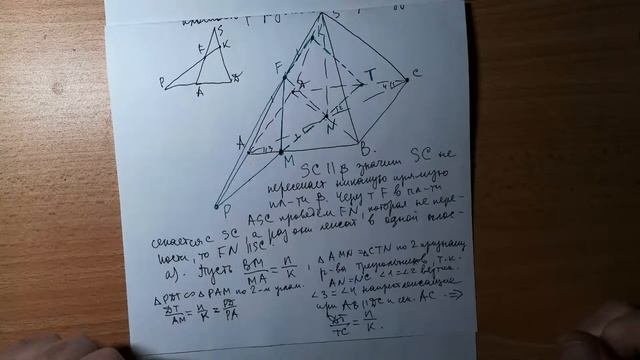 SC || β значит SC не
пересекает никакую прямую
пл-ти β. Через т F в пл-ти
ASC проведём FN, которая не пере-
секается с SC, а раз они лежат в одной плос-
кости, то FN || SC.
а). Пусть BM/MA = n/K,
ΔAMN = ΔCTN по 2 признаку
р-ва треугольников, т.к.
AN = NC ∠1 = ∠2 вертик.
∠3 = ∠4 накрест лежащие
при AB || DC и сек. AC. ⇒
DT/TC = n/K.
ΔPDT ∽ ΔPAM по 2-м углам.
DT/AM = n/K = PD/PA
S
F
K
P
A
D
S
K
F
T
C
A
N
M
B
P